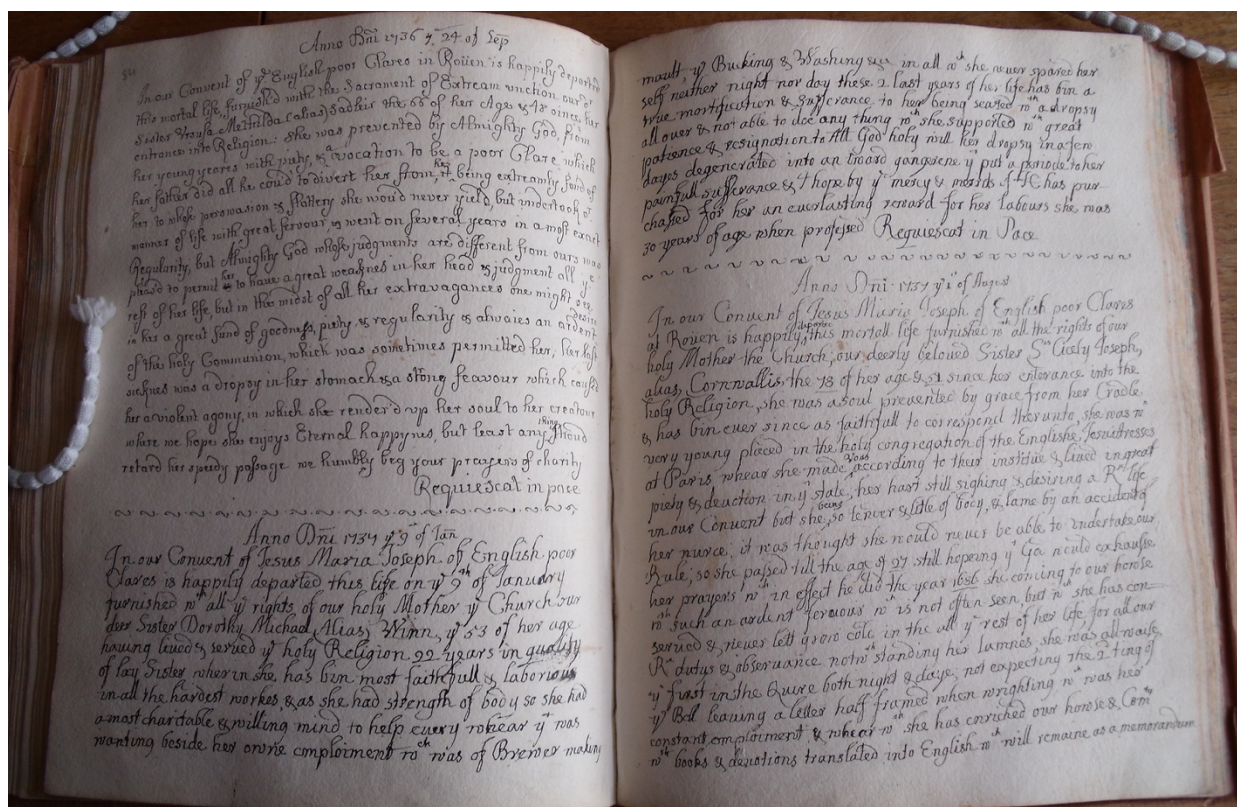 84
Anno Dñi 1736 yᵉ 24 of Sep
In our Convent of yᵉ English poor Clares in Roüen is happily departed
this mortal life, furnish'd with the Sacrament of Extream unction our dʳ
Sister Ursula Methilda (alias) Sadleir the 66 of her Age & 48 since her
entrance into Religion: she was prevented by Almighty God, from
her young yeares with piety, & a vocation to be a poor Clare which
her father did all he cou'd to divert her from, it being extreamly fond of
her to whose perswasion & flattery she would never yield, but undertook oʳ
manner of life with great fervour, & went on several years in a most exact
Regularity, but Almighty God whose judgments are different from ours was
pleas'd to permit her to have a great weaknes in her head & judgment all yᵉ
rest of her life, but in the midst of all her extravagances one might see
in her a great fund of goodness, piety, & regularity & alwaies an ardent desire
of the holy Communion, which was sometimes permitted her, her last
sicknes was a dropsy in her stomack & a stong feavour which caused
her a violent agony, in which she render'd up her soul to her creatour
where we hope she enjoys Eternal happynes, but least any thing shou'd
retard her speedy passage we humbly beg your prayers of charity
Requiescat in pace
Anno Dñi 1737 yᵉ 9ᵗʰ of Jan
In our Convent of Jesus Maria Joseph of English poor
Clares is happily departed this life on yᵉ 9ᵗʰ of January
furnished wᵗʰ all yᵉ rights of our holy Mother yᵉ Church our
deer Sister Dorothy Michael, Alias, Winn, yᵉ 53 of her age
having lived & served yᵉ holy Religion 22 years in quality
of lay Sister wher in she has bin most faithfull & laborious
in all the hardest workes & as she had strength of body so she had
a most charitable & willing mind to help every whear yᵗ was
wanting beside her owne emploiment wᶜʰ was of Brewer making
85
mault yᵉ Bucking & Washing &c in all wᶜʰ she never spared her
self neither night nor day these 2 last years of her life has bin a
true mortification & sufferance to her being seased wᵗʰ a dropsy
all over & not able to doe any thing wᶜʰ she supported wᵗʰ great
patience & resignation to All God holy will her dropsy in a few
dayes degenerated into an inward gangrene yᵗ put a periode to her
painfull sufferance & I hope by yᵉ mercy & merids of JC has pur
chased for her an everlasting reward for her labours she was
30 years of age when professed Requiescat in Pace
Anno Dñi: 1737 yᵉ 1 of
In our Convent of Jesus Maria Joseph of English poor Clares
at Roüen is happily departed this mortall life furnished wᵗʰ all the rights of our
holy Mother the Church, our deerly beloved Sister Sʳ Cicely Joseph,
alias, Cornwallis, the 78 of her age & 51 since her enterance into the
holy Religion, she was a soul prevented by grace from her Cradle
& has bin ever since as faithfull to correspond therunto, she was wⁿ
very young placed in the holy congregation of the Englishe Jesuitresses
at Paris whear she made vows according to their institue & lived in great
piety & devotion in yᵗ state, her hart still sighing & desiring a Rˢ life
in our Convent but she being so tender & litle of body, & lame by an accident of
her nurce, it was thought she would never be able to undertake our
Rule, so she passed till the age of 27 still hopeing yᵗ God would exhausse
her prayers wᶜʰ in effect he did the year 1686 she coming to our howse
wᵗʰ such an ardent fervour wᶜʰ is not often seen but wᶜʰ she has con
served & never left grow cole in the all yᵉ rest of her life, for all our
Rˢ dutys & observance notwᵗʰ standing her lamnes, she was allwaise
yᵉ first in the Quire both night & daye, not expecting the 2 ting of
yᵉ Bell leaving a letter half framed when wrighting wᶜʰ was her
constant emploiment & whear wᵗʰ she has enriched our howse & Comᵗʸ
wᵗʰ books & devotions translated into English wᶜʰ will remaine as a memorandum